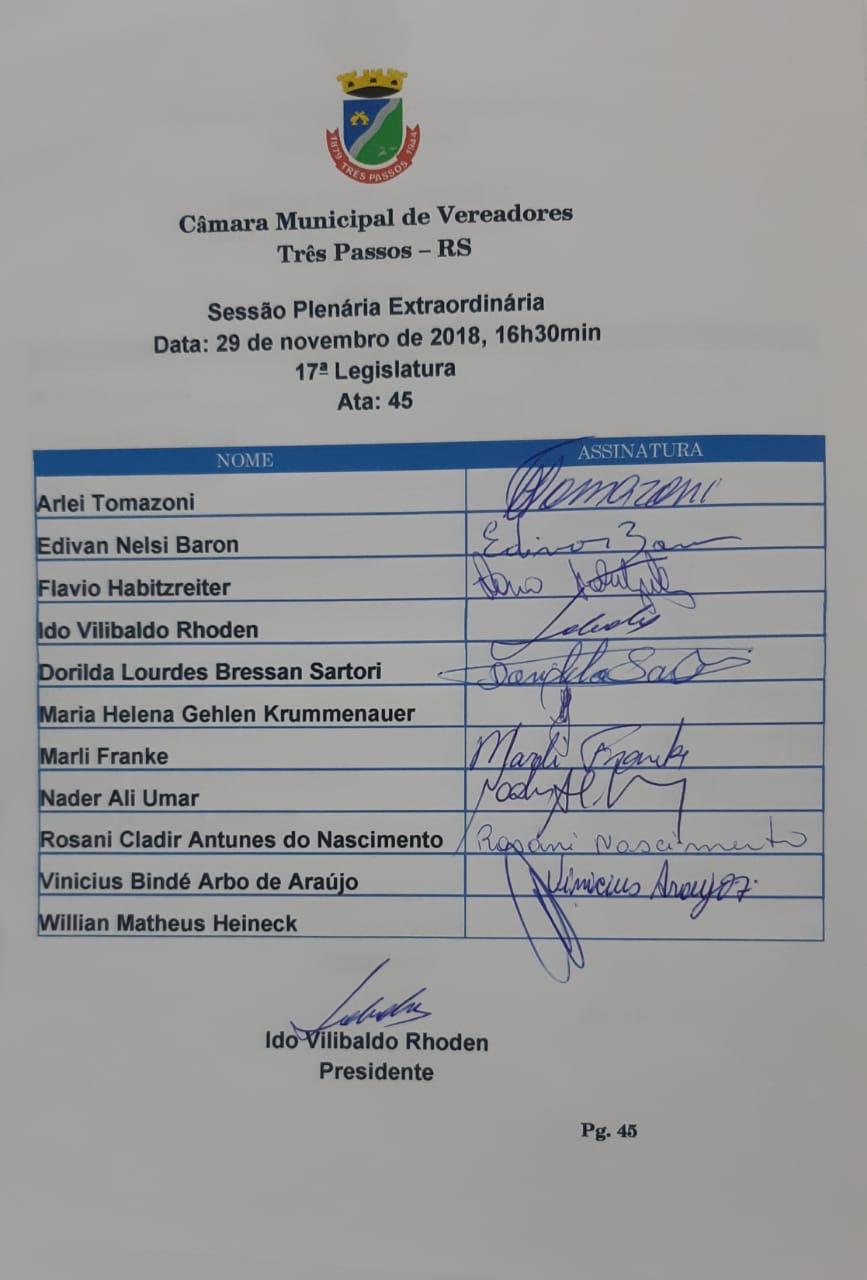 1879 TRÊS PASSOS 1944
Câmara Municipal de Vereadores
Três Passos – RS
Sessão Plenária Extraordinária
Data: 29 de novembro de 2018, 16h30min
17ª Legislatura
Ata: 45
NOME ASSINATURA
Arlei Tomazoni Tomazoni
Edivan Nelsi Baron
Flavio Habitzreiter
Ido Vilibaldo Rhoden
Dorilda Lourdes Bressan Sartori
Maria Helena Gehlen Krummenauer
Marli Franke Marli Franke
Nader Ali Umar
Rosani Cladir Antunes do Nascimento Rosani Nascimento
Vinicius Bindé Arbo de Araújo Vinicius Araujo
Willian Matheus Heineck
Ido Vilibaldo Rhoden
Presidente
Pg. 45